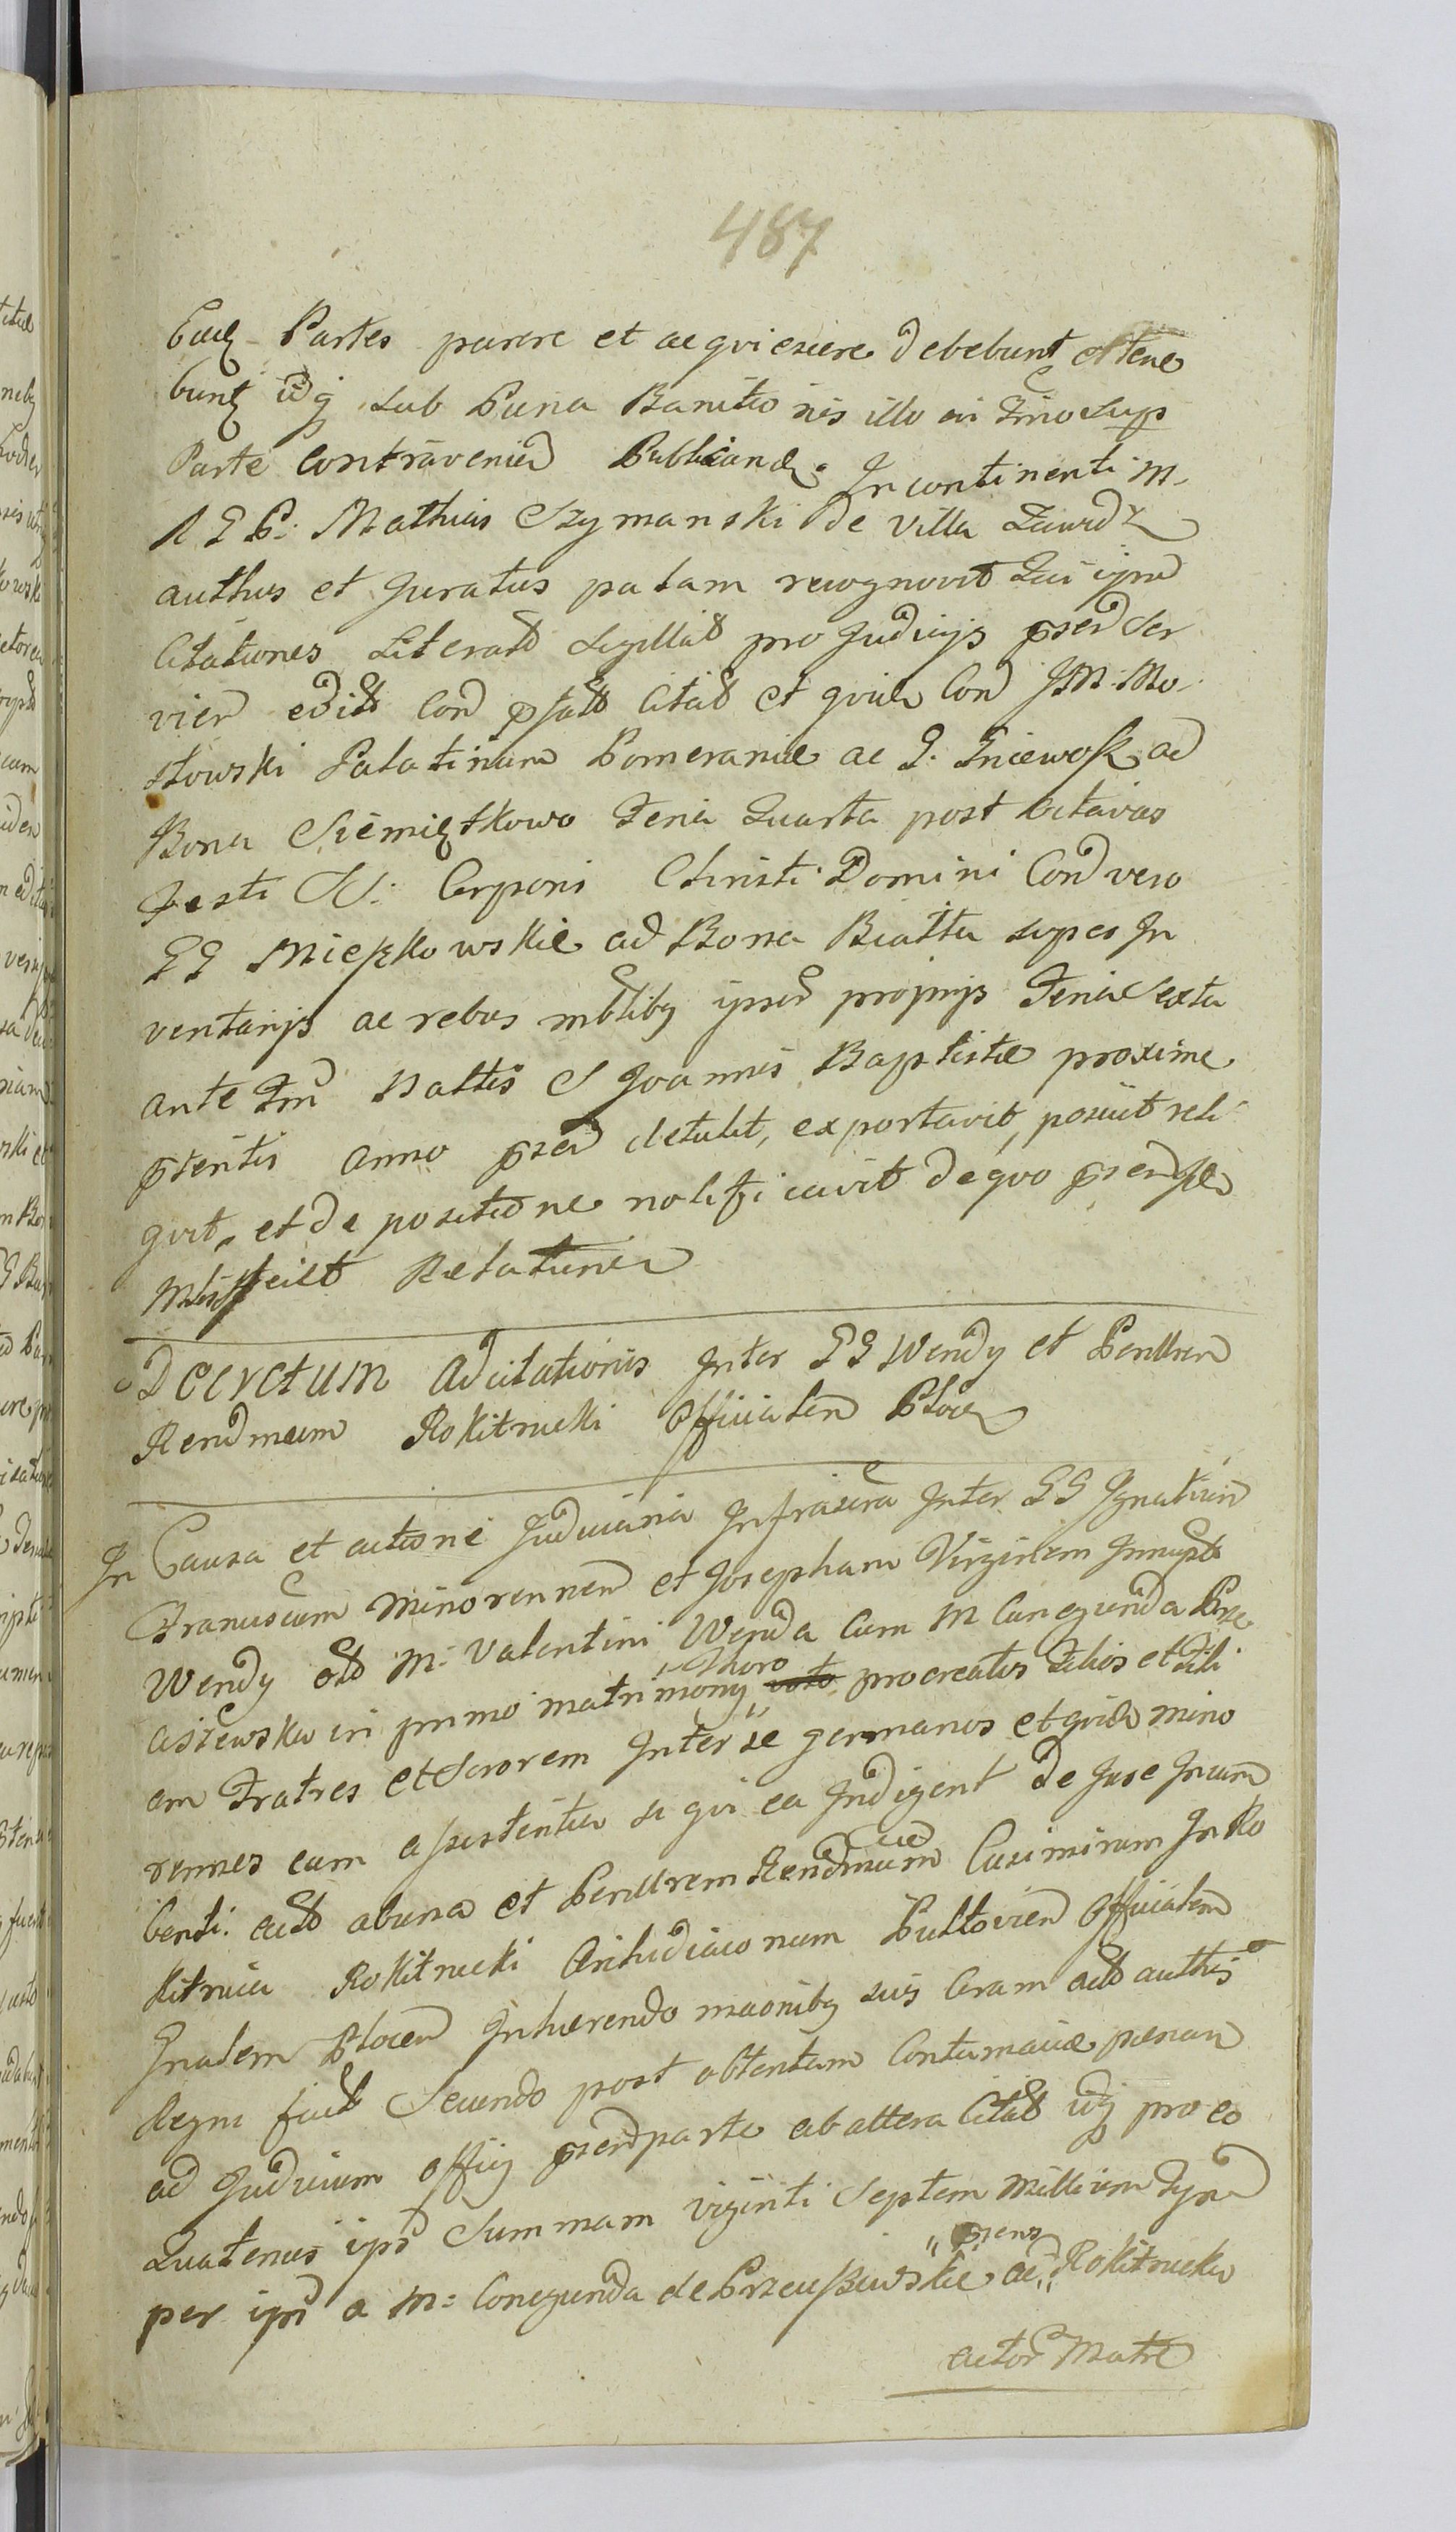 487
Partes parere et acqviescere debebunt et tene
bunt idq sub Pæna Banitionis illo in Tmino sup
Parte contravenien Publicand. Incontinenti M.
R G P: Mathias Szymanski de villa Zawid
authus et Juratus palam recognovit Qui ipse
Citationes Literat Sigillat pro Judicijs prsed Ser
vien edit Con pfatt Citat et qvid Con JM Mo
stowski Palatinum Pomeraniæ ac G. Gniewosz ad
Bona Siemiętkowo Feria Quarta post octavas
Festi SS: Corporis Christi Domini Con vero
GG Mieszkowskie ad Bona Białta super In
ventarijs ac rebus mbliby ipsor propriis Feria Sexta
ante Fm Naltis S Joannis Baptistæ proxime
prsentis anno prsen detulit, exportavit, posuit reli
qvit, et de positione notificavit de qvo prsen
Mstrlis fecit Relationem
Decretum Adcitationis Inter GG Wendy et Perillrem
Rendmum Rokitnicki Officialem Płocen
In Causa et actione Judiciaria Infrascra Inter GG Ignatium
Franciscum Minorennem et Josepham Virginem Innupt
Wendy olt M. Valentini Wenda cum M Cunegunda Prze
ciszewska in primo matrimony voto thoro procreatos Filios et Fili
am Fratres et Sororem Inter se germanos et qvid mino
rennes cum assistentia si qvi ea Indigent de Jure Incum
benti. act ab una et Perillrem Rendmum Casimirum In Ro
kitnica Rokitnicki Archidiaconum Pultovien Officialem
Gnalem Płocen Inhærendo maoniby suis Coram act authis
Regni fact Secundo post obtentam Contumaciæ pænam
ad Judicium offij prsen parte ab altera Citat idq pro eo
Quatenus ips Summam viginti Septem Millium Tynf
per ipm a M: Conegunda de Przeciszewskie ac prsens Rokitnicka
actor Matre